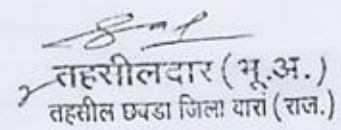 तहसीलदार (भू.अ.)
तहसील छबडा जिला बारां (राज.)